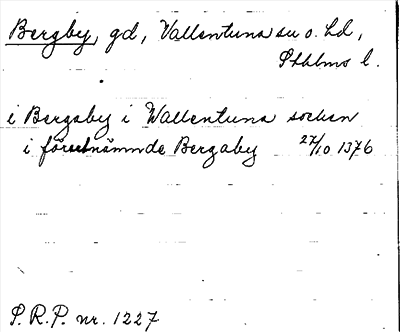 Bergby, gd, Vallentuna sn o. hd,
Sthlms l.
i Bergaby i Wallentuna socken
i förutnämnde Bergaby 27/10 1376
S.R.P. nr. 1227